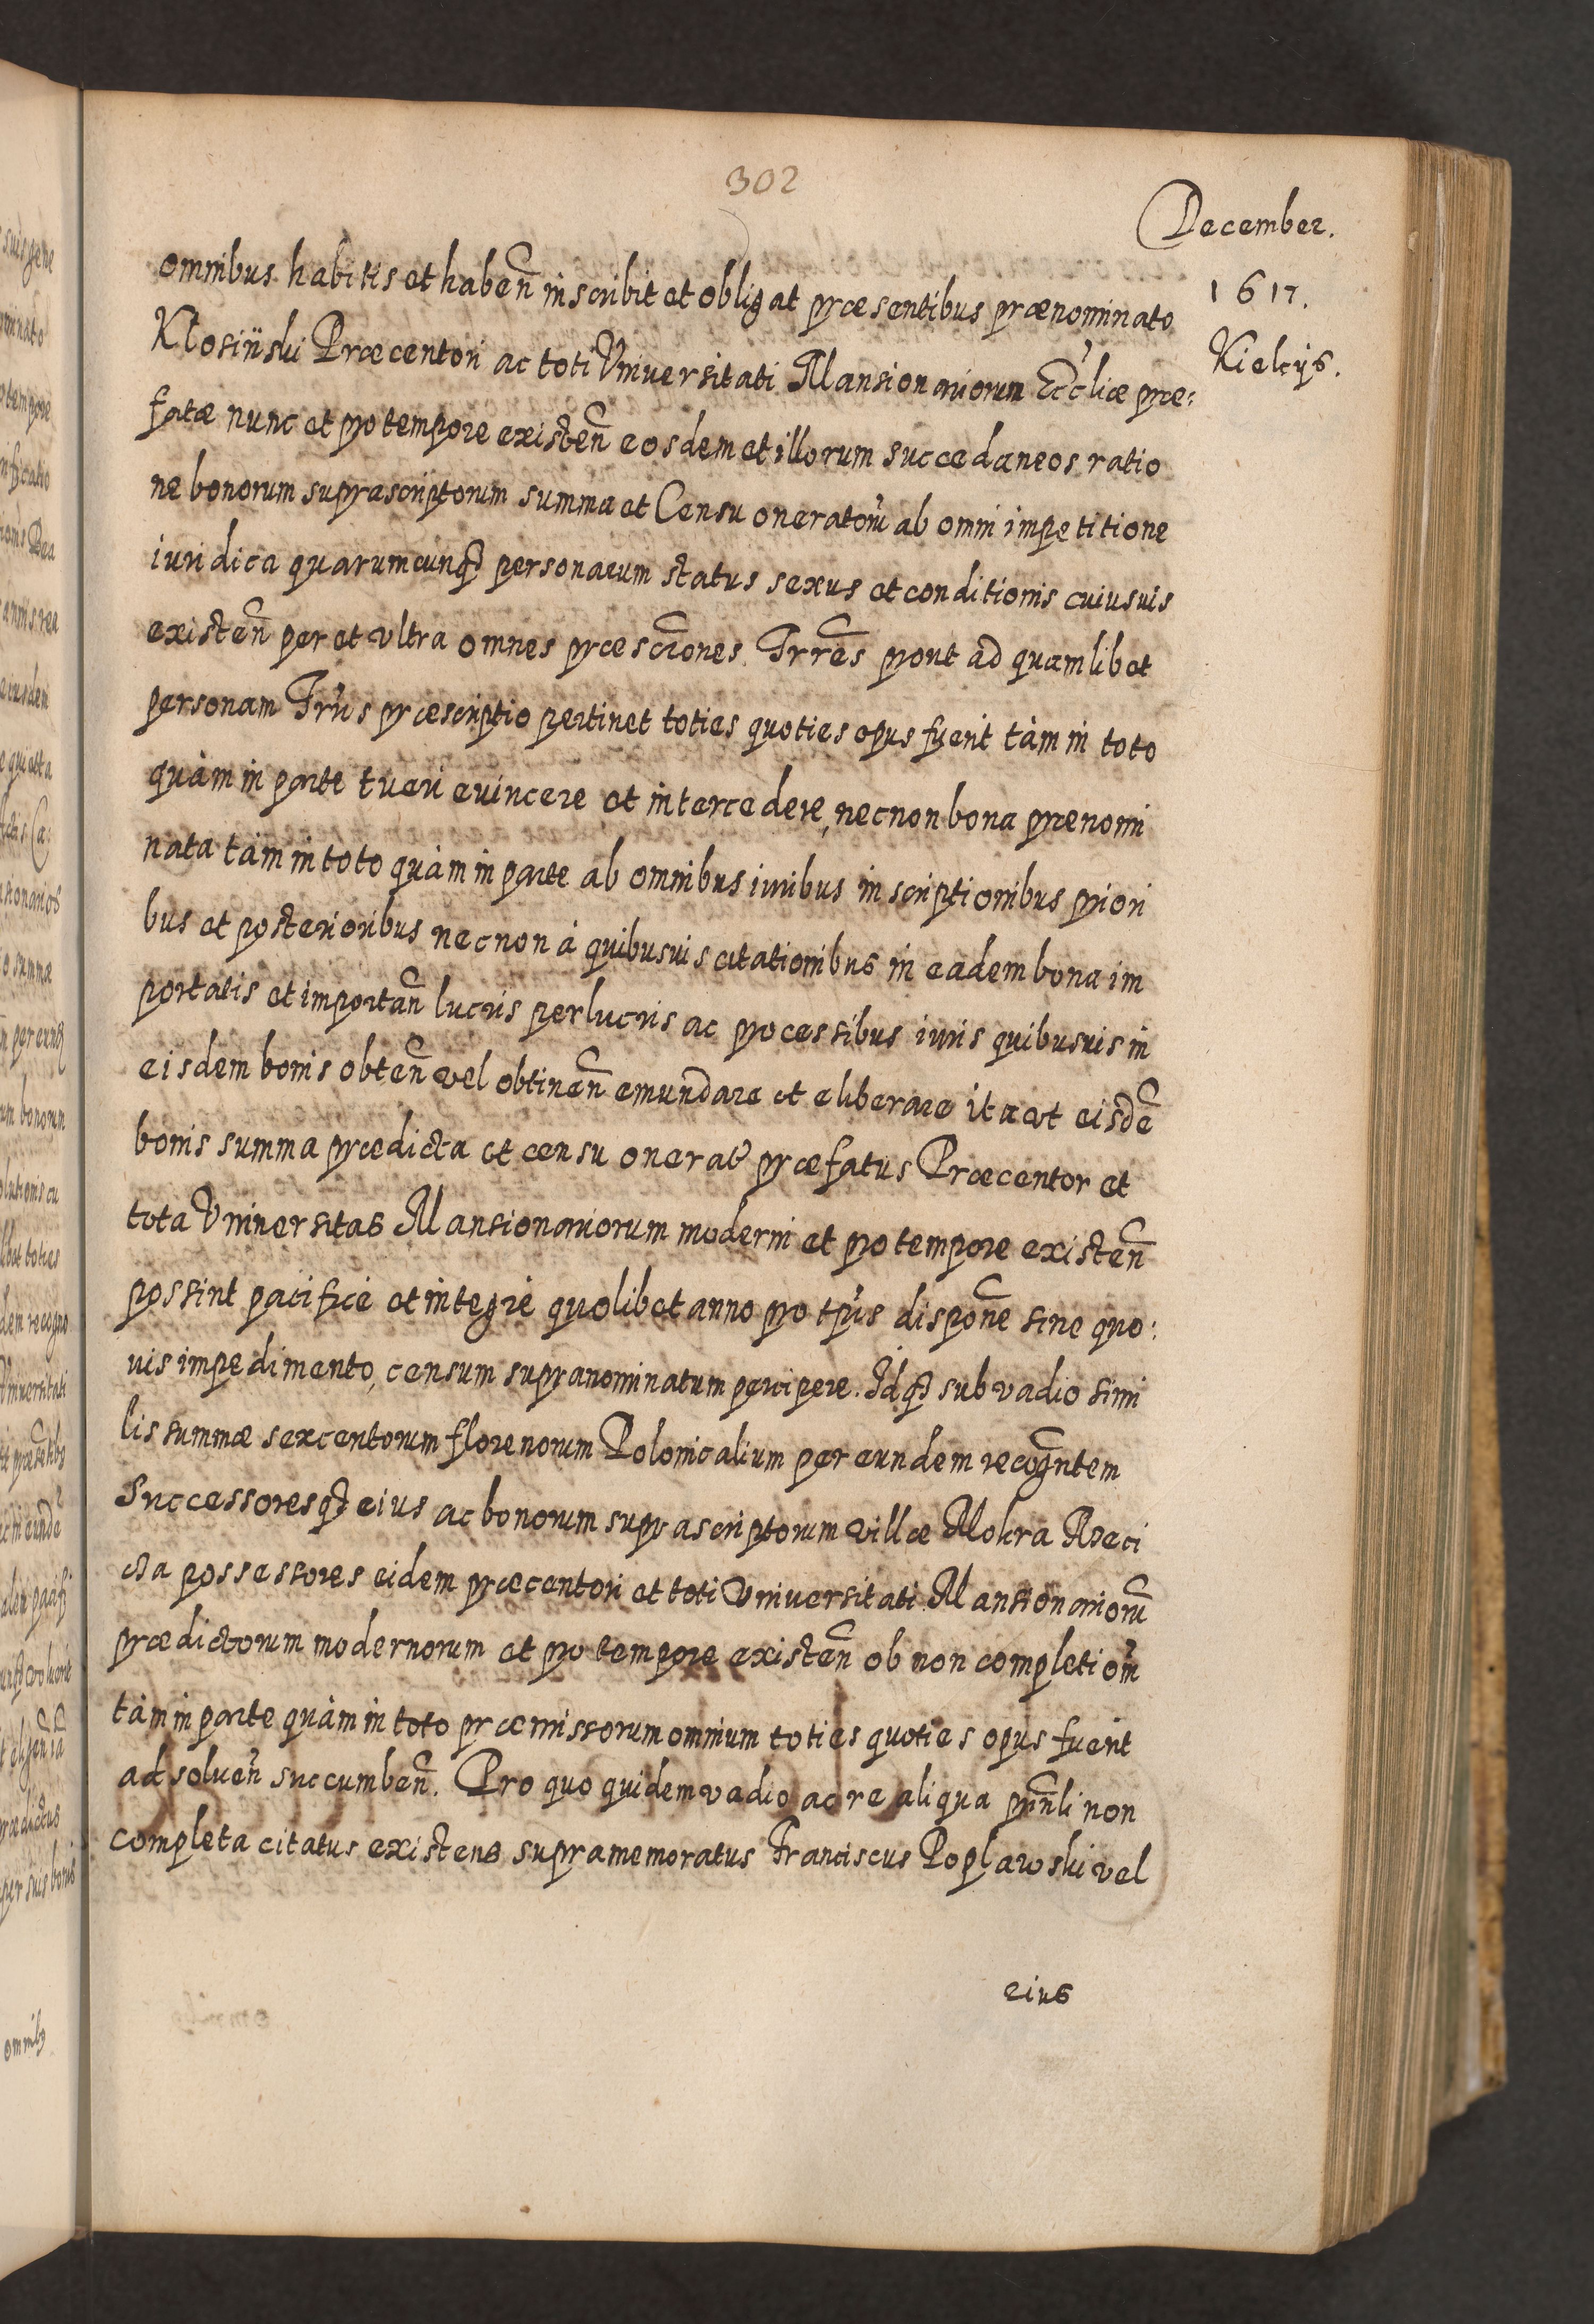 302
December.
1617.
Kielcijs.
omnibus habitis et habeñ inscribit et obligat præsentibus prænominato
Klosiński Præcentori ac toti Vniuersitati Mansionariorum Eccliæ præ:
fatæ nunc et pro tempore existeñ eosdem et illorum succedaneos ratio
ne bonorum suprascriptorum summa et Censu oneratorũ ab omni impetitione
iuridica quarumcunq₃ personarum status sexus et conditionis cuiusuis
existeñ per et vltra omnes præscriões Trrẽs prout ad quamlibet
personam Trñs præscriptio pertinet toties quoties opus fuerit tàm in toto
quàm in parte tueri euincere et intercedere, necnon bona prenomi
nata tàm in toto quàm in parte ab omnibus iuribus inscriptionibus priori
bus et posterioribus necnon à quibusuis citationibus in eadem bona im
portatis et importañ lucris perlucris ac processibus iuris quibusuis in
eisdem bonis obteñ vel obtineñ emundare et eliberare ita vt eisdẽ
bonis summa prædicta et censu onerat̃ præfatus Præcentor et
tota Vniuersitas Mansionariorum moderni et pro tempore existeñ
possint pacificè et integrè quolibet anno pro tp̃is dispoñe sine quo:
uis impedimento, censum supranominatum percipere. Idq₃ sub vadio simi
lis summæ sexcentorum florenorum Polonicalium per eundem recogñtem
Successoresq₃ eius ac bonorum suprascriptorum villæ Mokra Rzeci
cza possessores eidem præcentori et toti Vniuersitati Mansionariorũ
prædictorum modernorum et pro tempore existeñ ob non completioñ
tàm in parte quàm in toto præmissorum omnium toties quoties opus fuerit
ad solueñ succumbeñ. Pro quo quidem vadio ac re aliqua prñli non
completa citatus existens supramemoratus Franciscus Poplawski vel
eius